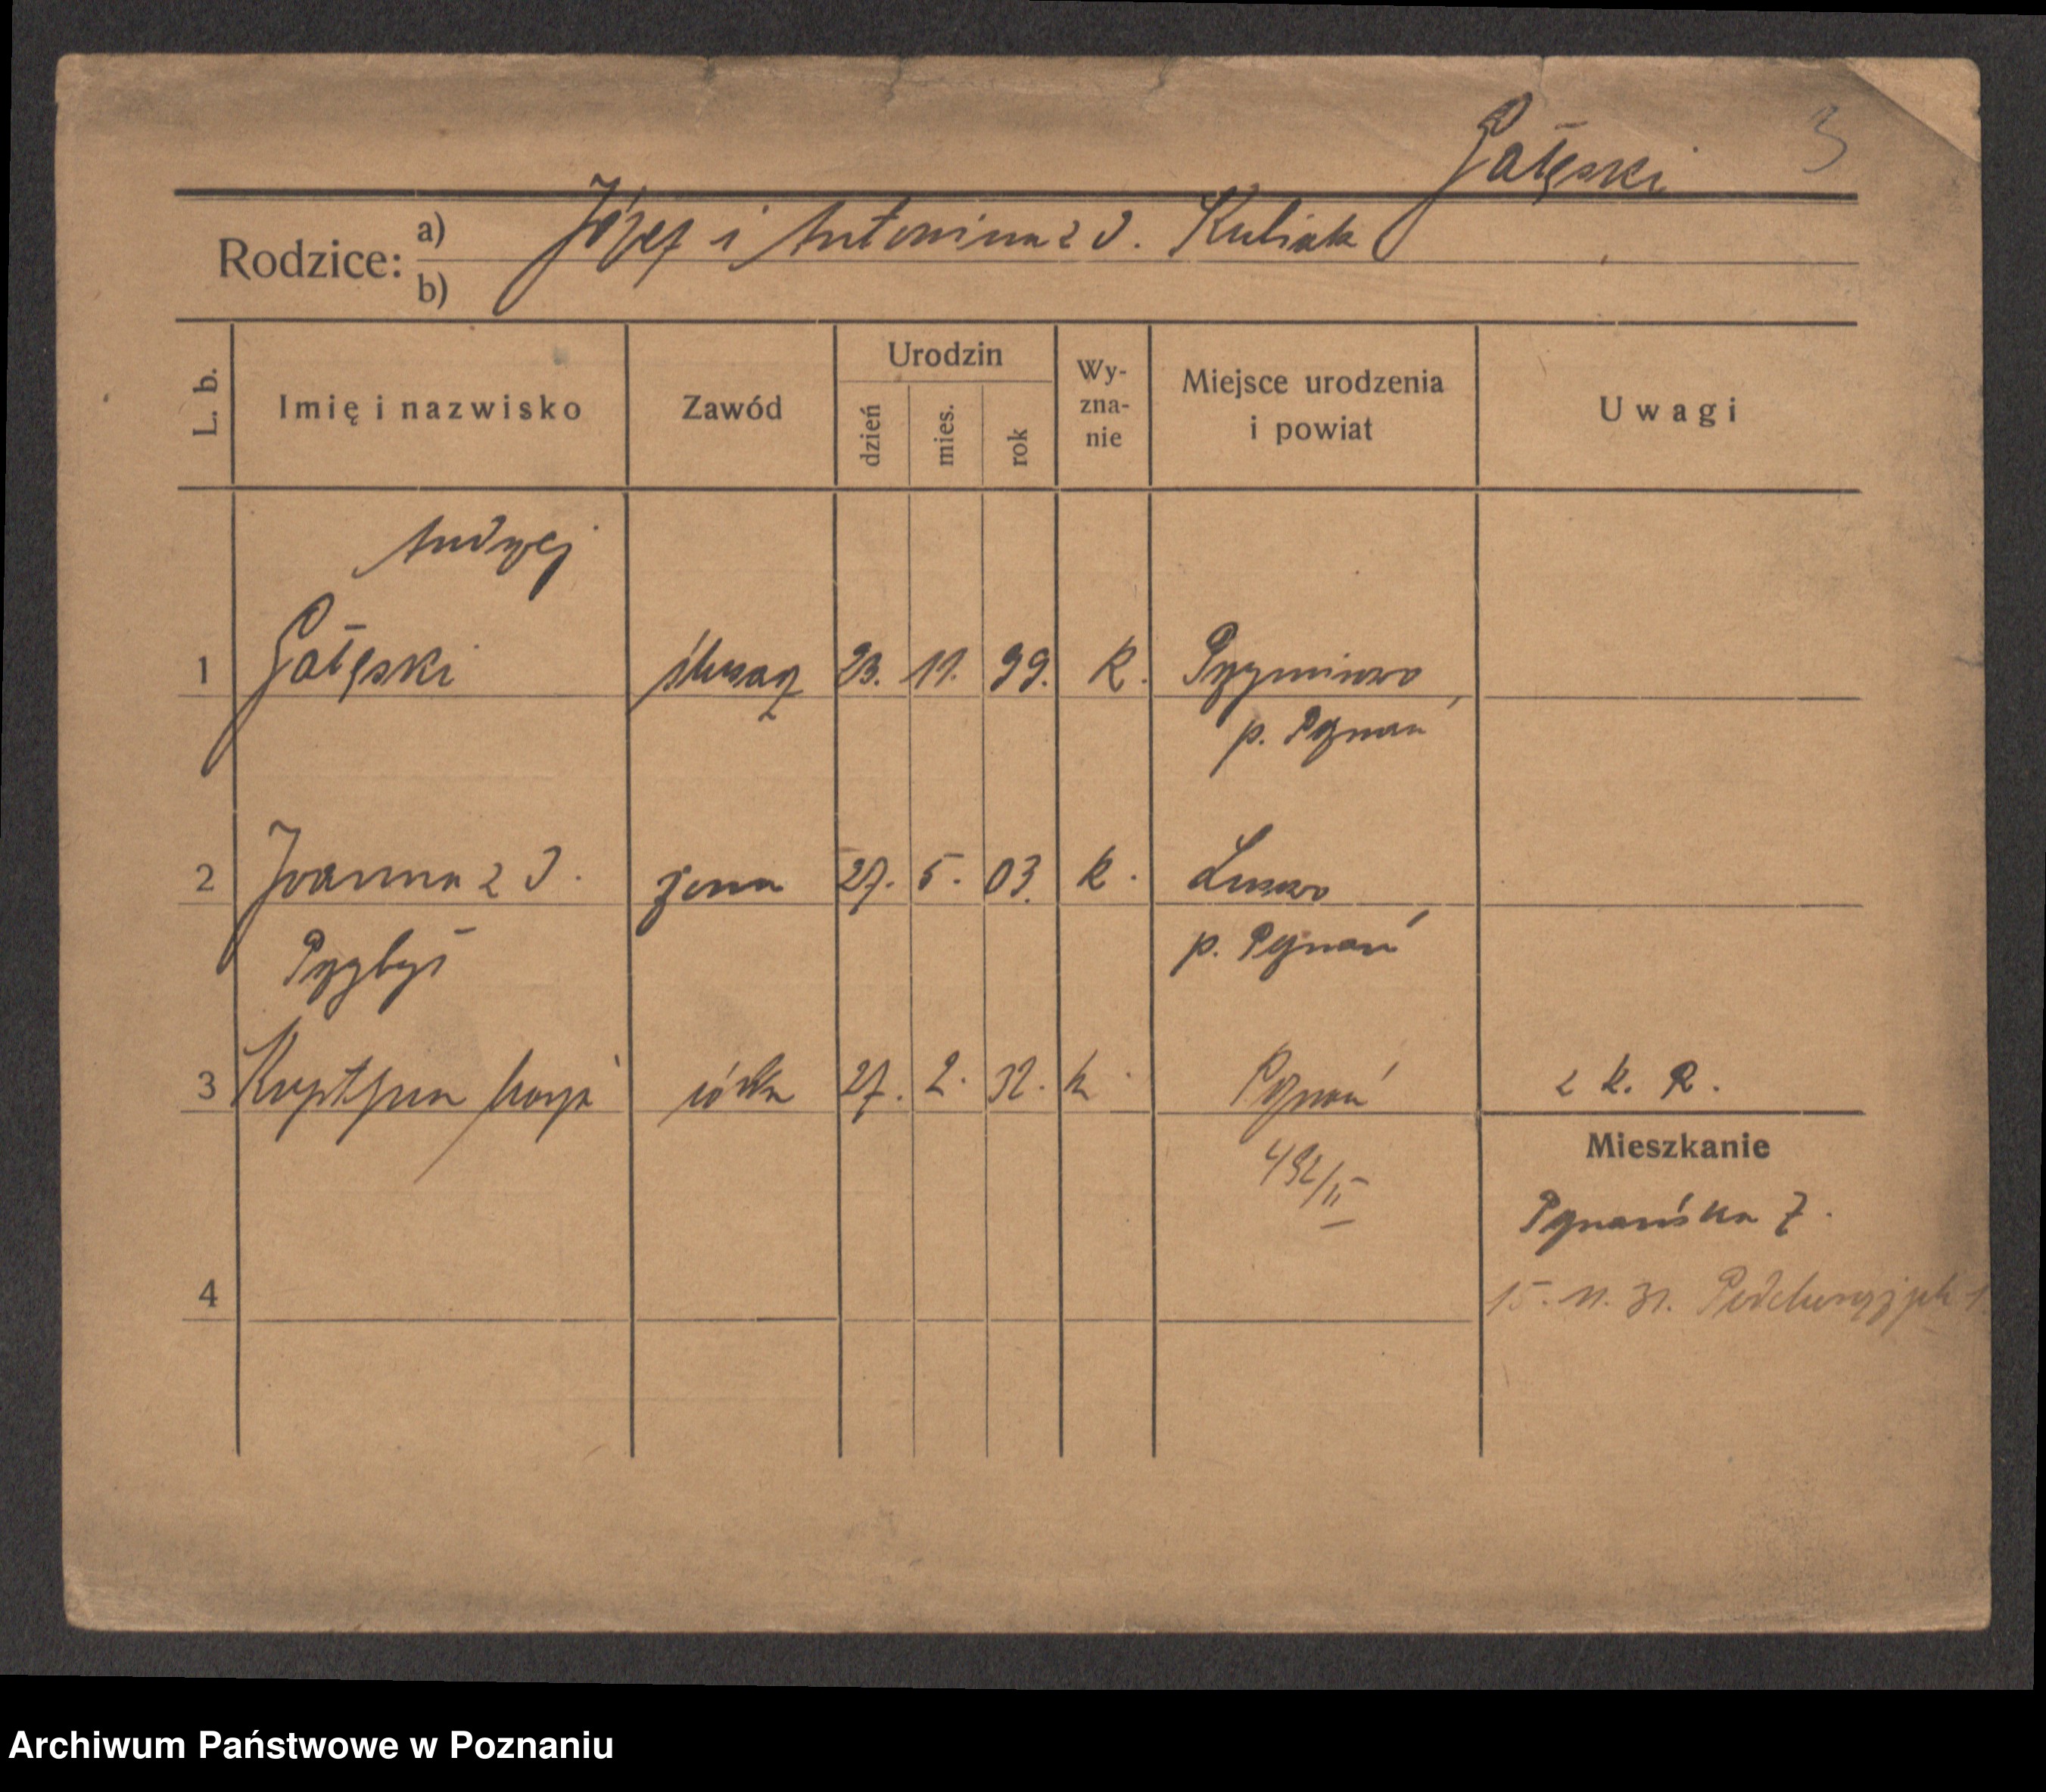 Gałęski 3
Rodzice: a) Józef i Antonina z d. Kubiak
b)
L. b. Imię i nazwisko Zawód Urodzin dzień mies. rok Wy-zna-nie Miejsce urodzenia i powiat Uwagi
Andrzej
1 Gałęski ślusarz 23. 11. 99. k. 
p. Poznań
2 Joanna z d. żona 27. 5. 03. k. Lusowo
Przybył p. Poznań
3 Krystyna Marja córka 27. 2. 32. k. Poznań z k. R.
492/II
Mieszkanie
Poznańska 7.
4
15. 11. 31. Podchorążych 1
Archiwum Państwowe w Poznaniu